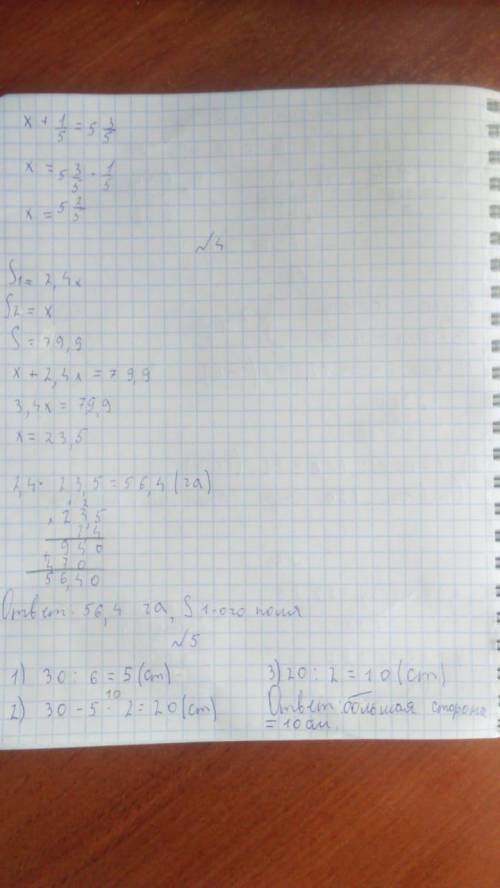 x + 1/5 = 5 3/5
x = 5 3/5 - 1/5
x = 5 2/5
№4
S1 = 2,4x
S2 = x
S = 79,9
x + 2,4x = 79,9
3,4x = 79,9
x = 23,5
2,4 · 23,5 = 56,4 (га)
235
24
940
470
56,40
Ответ: 56,4 га, S 1-ого поля
№5
1) 30 : 6 = 5 (cm)
2) 30 - 5 · 2 = 20 (cm)
10
3) 20 : 2 = 10 (cm)
Ответ большая сторона
= 10 см.